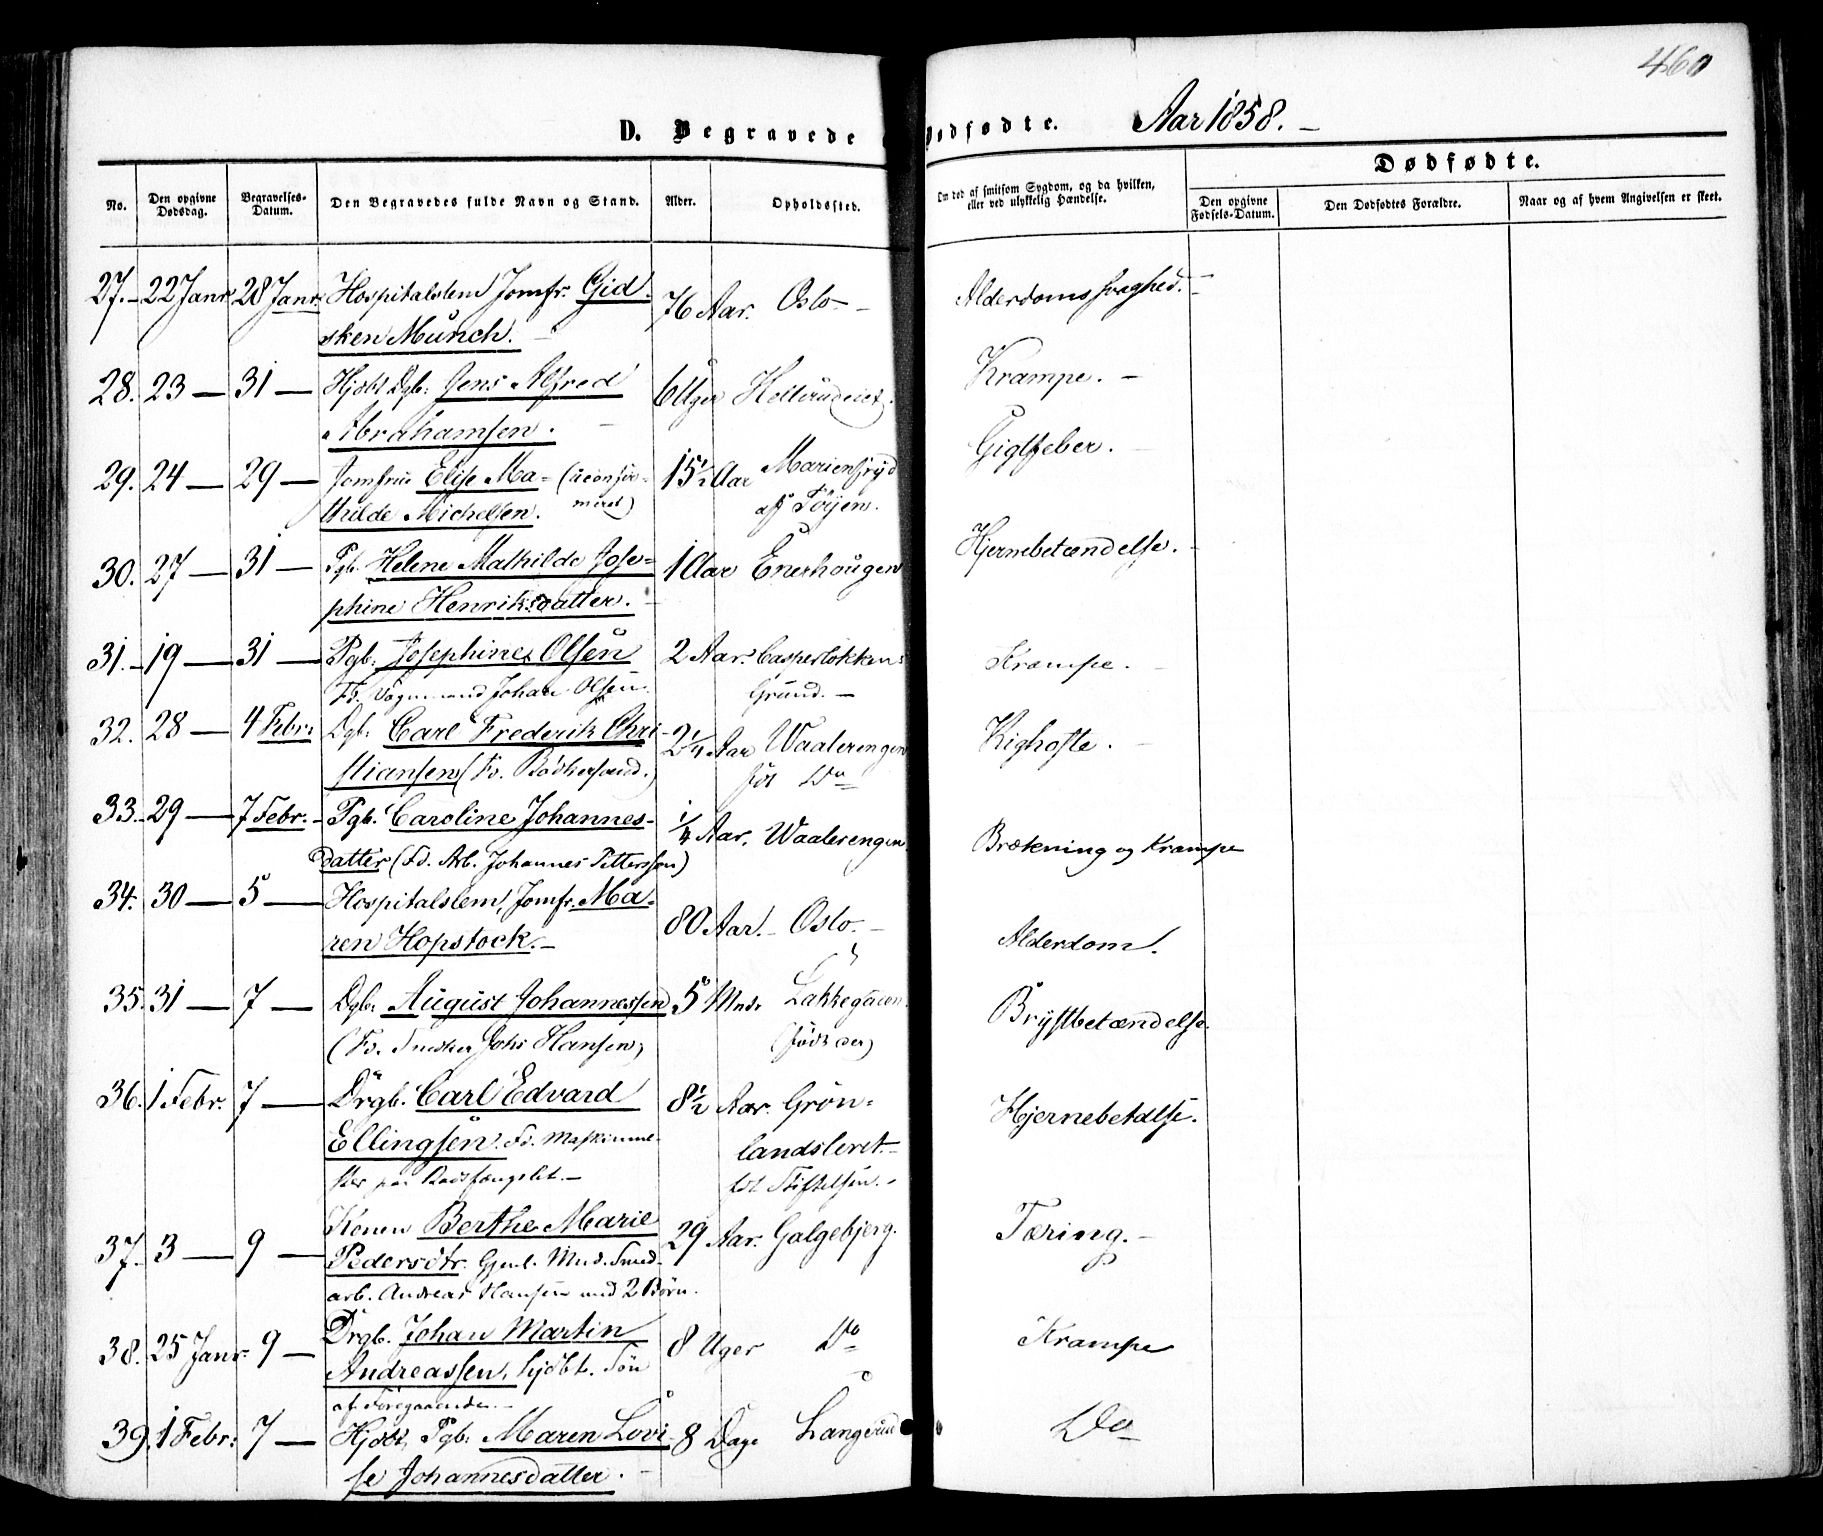 460
D. Begravede Dødfødte. Aar 1858.
No.
Den opgivne Dødsdag.
Begravelses-Datum.
Den Begravedes fulde Navn og Stand.
Alder.
Opholdssted.
Om død af smitsom Sygdom, og da hvilken, eller ved ulykkelig Hændelse.
Dødfødte.
Den opgivne Fødsels-Datum.
Den Dødfødtes Forældre.
Naar og af hvem Angivelsen er skeet.
27. 22 Janr. 28 Janr. Hospitalslem Jomfr. Gid- 76 Aar. Oslo Alderdomssvaghed.
sken Munch.
28. 23 — 31 — Hjdbt. Dgb. Jens Alfred 6 Uger Hellerudeiet. Krampe.
Abrahamsen.
29. 24 — 29 — Jomfru Elise Ma- (uconfir- 15½ Aar Marienfryd Gigtfeber.
thilde Michelsen. meret) af Tøyen.
30. 27 — 31 — Pgb. Helene Mathilde Jose- 1 Aar Enerhougen Hjernebetændelse.
phine Henriksdatter.
31. 19 — 31 — Pgb. Josephine Olsen 2 Aar. Casperløkkens Krampe.
Fd. Vognmand Johan Olsen. Grund.
32. 28 — 4 Febr. Dgb. Carl Frederik Chri- 2¼ Aar Waalerengen Kighoste.
stiansen (Fd. Bødkersvend.) født Do
33. 29 — 7 Febr. Pgb. Caroline Johannes- ¼ Aar. Waalerengen Brækning og Krampe
datter (Fd. Arb. Johannes Pettersson)
34. 30 — 5 — Hospitalslem, Jomfr. Ma- 80 Aar. Oslo. Alderdom.
ren Hopstock.
35. 31 — 7 — Dgb. August Johannessen 5 Mndr Lakkegaden Brystbetændelse.
(Fd. Snedker Johs Hansen) (født der)
36. 1 Febr. 7 — Drgb. Carl Edvard 8½ Aar. Grøn- Hjernebetdlse.
Ellingsen. Fd. Maskinme- landsleret
ster paa Bodsfængslet. Stiftelsen.
37. 3 — 9 — Konen Berthe Marie 29 Aar. Galgebjerg. Tæring.
Pedersdtr. Gjenl. Md. Smed-
arb. Andreas Hansen med 2 Børn.
38. 25 Janr. 9 — Drgb. Johan Martin 8 Uger Do Krampe
Andreassen, hjdbt. Søn
af Foregaaende.
39. 1 Febr. 7 — Hjdbt. Pgb. Maren Lovi- 8 Dage Langerud Do
se Johannesdatter.